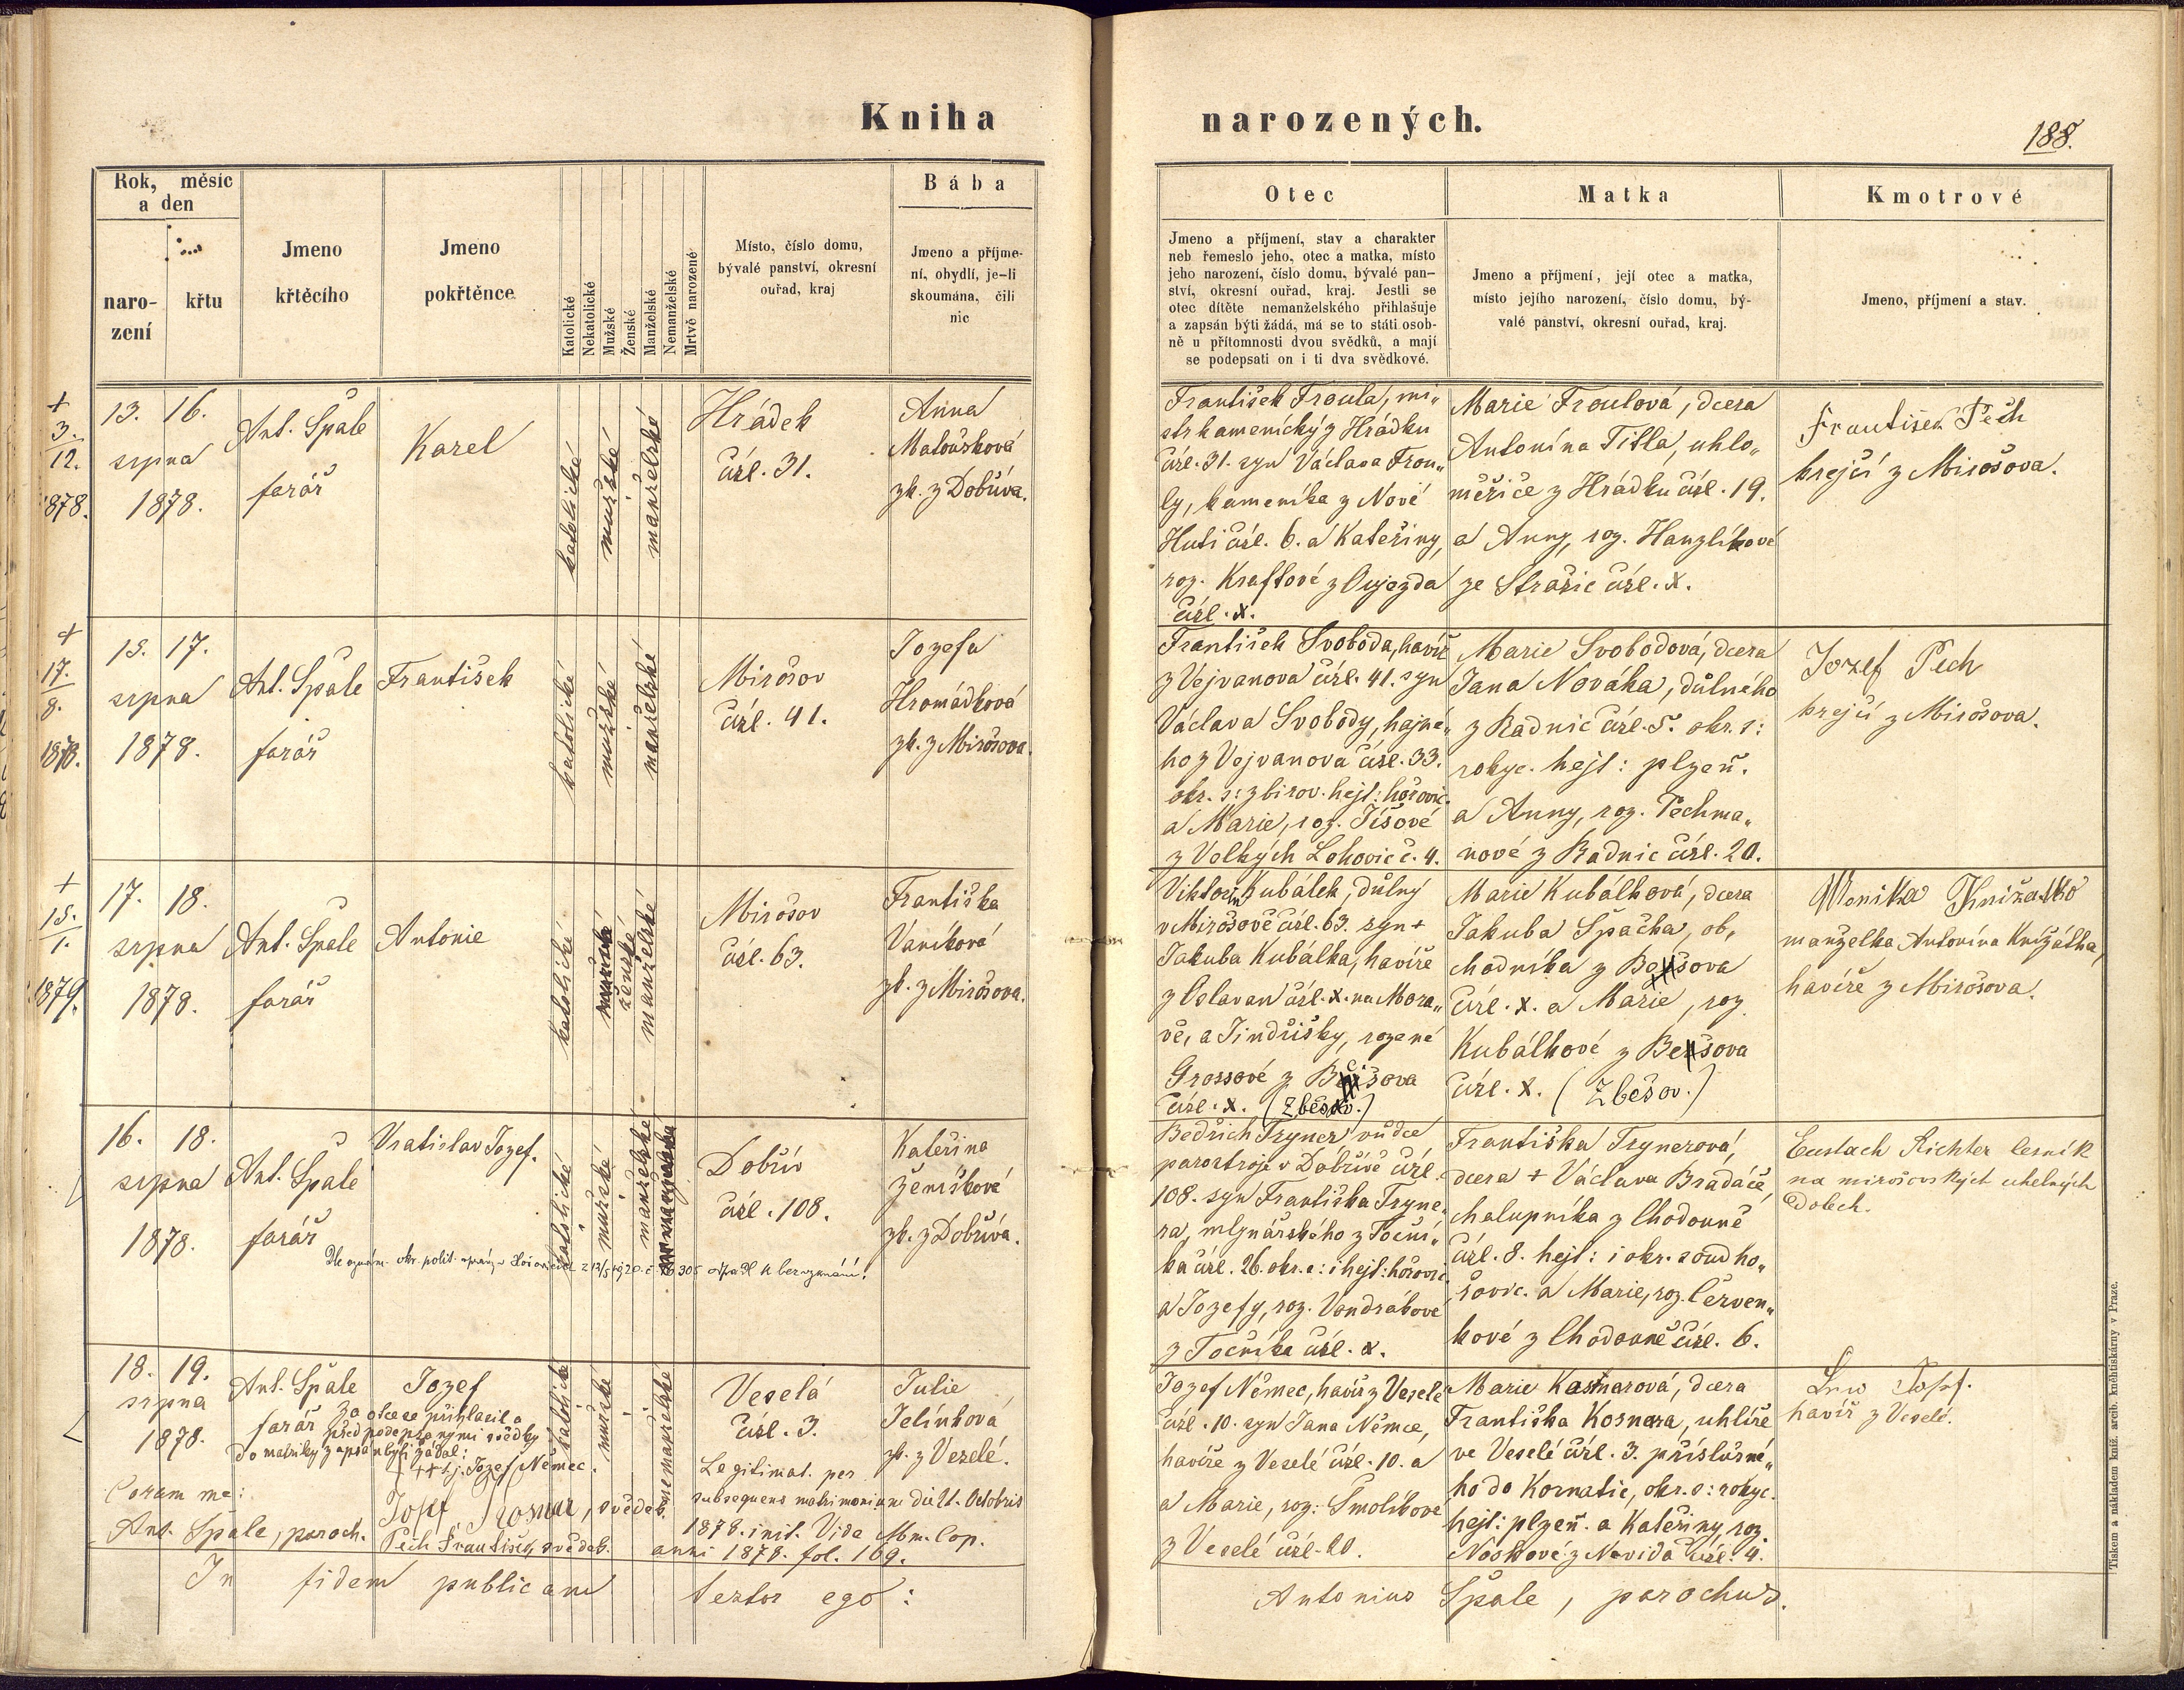 Kniha narozených.
188.
Rok, měsíc
a den
naro-
zení
křtu
Jmeno
křtěcího
Jmeno
pokřtěnce
Katolické
Nekatolické
Mužské
Ženské
Manželské
Nemanželské
Mrtvě narozené
Místo, číslo domu,
bývalé panství, okresní
ouřad, kraj
Bába
Jmeno a příjme-
ní, obydlí, je-li
skoumána, čili
nic
Otec
Jmeno a příjmení, stav a charakter
neb řemeslo jeho, otec a matka, místo
jeho narození, číslo domu, bývalé pan-
ství, okresní ouřad, kraj. Jestli se
otec dítěte nemanželského přihlašuje
a zapsán býti žádá, má se to státi osob-
ně u přítomnosti dvou svědků, a mají
se podepsati on i ti dva svědkové.
Matka
Jmeno a příjmení, její otec a matka,
místo jejího narození, číslo domu, bý-
valé panství, okresní ouřad, kraj.
Kmotrové
Jmeno, příjmení a stav.
+
3.
12.
1878.
13. 16.
srpna
1878.
Ant. Špale
farář
Karel
katolické
mužské
manželské
Hrádek
čísl. 31.
Anna
Matoušková
zk. z Dobřiva.
František Froula, mi„
str kamenický z Hrádku
čísl. 31. syn Václava Frou„
ly, kameníka z Nové
Huti čísl. 6. a Kateřiny,
roz. Kraftové z Oujezda
čísl. x.
Marie Froulová, dcera
Antonína Titla, uhlo„
měřiče z Hrádku čísl. 19.
a Anny, roz. Hanzlíkové
ze Strašic čísl. x.
František Pech
krejčí z Mirošova.
+
17.
8.
1878.
15. 17.
srpna
1878.
Ant. Špale
farář
František
katolické
mužské
manželské
Mirošov
čísl. 41.
Jozefa
Hromádková
zk. z Mirošova.
František Svoboda, havíř
z Vejvanova čísl. 41. syn
Václava Svobody, hajné„
ho z Vejvanova čísl. 33.
okr. s: zbirov. hejt: hořovic.
a Marie, roz. Tíšové
z Velkých Lohovic č. 4.
Marie Svobodová, dcera
Jana Nováka, důlného
z Radnic čísl. 5. okr. s:
rokyc. hejt: plzeň.
a Anny, roz. Pechma„
nové z Radnic čísl. 20.
Jozef Pech
krejčí z Mirošova.
+
15.
1.
1879.
17. 18.
srpna
1878.
Ant. Špale
farář
Antonie
katolické
mužské
ženské
manželské
Mirošov
čísl. 63.
Františka
Vaníková
zk. z Mirošova.
Viktorin Kubálek, důlný
v Mirošově čísl. 63. syn +
Jakuba Kubálka, havíře
z Oslavan čísl. x. na Mora„
vě, a Jindřišky, rozené
Grossové z
čísl. x. (Zbešov.)
Marie Kubálková, dcera
Jakuba Špačka, ob„
chodníka z
čísl. x. a Marie, roz.
Kubálkové z
čísl. x. (Zbešov.)
Monika
manželka Antonína Knížátka,
havíře z Mirošova.
16. 18.
srpna
1878.
Ant. Špale
farář
Vratislav Jozef.
katolické
mužské
manželské
Dobřív
čísl. 108.
Kateřina
Ženíšková
zk. z Dobříva.
Dle oznám. okr. polit. správy v Hořovicích z odpadl k bezvyznání.
Bedřich Tryner vůdce
parostroje v Dobřívě čísl.
108. syn Františka Tryne„
ra, mlynářského z Toční„
ka čísl. 26. okr. s: i hejt: hořovic.
a Jozefy, roz. Vondrákové
z Točníka čísl. x.
Františka Trynerová,
dcera + Václava Bradáče,
chalupníka z Chodouně
čísl. 8. hejt: i okr. soud ho„
řovic. a Marie, roz. Červen„
kové z Chodouně čísl. 6.
Eustach Richter lesník
na mirošovských uhelných
dolech.
18. 19.
srpna
1878.
Ant. Špale
farář
Jozef
katolické
mužské
nemanželské
Veselá
čísl. 3.
Julie
Jelínková
zk. z Veselé.
Za otce se přihlásil a
před podepsanými svědky
do matriky zapsán býti žádal:
+++ tj. Jozef Němec.
Coram me:
Ant. Špale, paroch.
Josef Kosnar, svědek.
Pech František, svědek.
Legitimat. per
subsequens matrimonium die 1t. Octobris
1878. init. Vide Mbn. Cop.
anni 1878. fol. 169.
Jozef Němec, havíř z Veselé
čísl. 10. syn Jana Němce,
havíře z Veselé čísl. 10. a
a Marie, roz: Smolíkové
z Veselé čísl. 20.
Marie Kasnarová, dcera
Františka Kosnara, uhlíře
ve Veselé čísl. 3. příslušné„
ho do Kornatic, okr. s: rokyc.
hejt: plzeň. a Kateřiny, roz.
Noskové z Nevida čísl. 4.
havíř z Veselé.
In fidem publicam testor ego: Antonius Špale, parochus.
Tiskem a nákladem kníž. arcib. knihtiskárny v Praze.